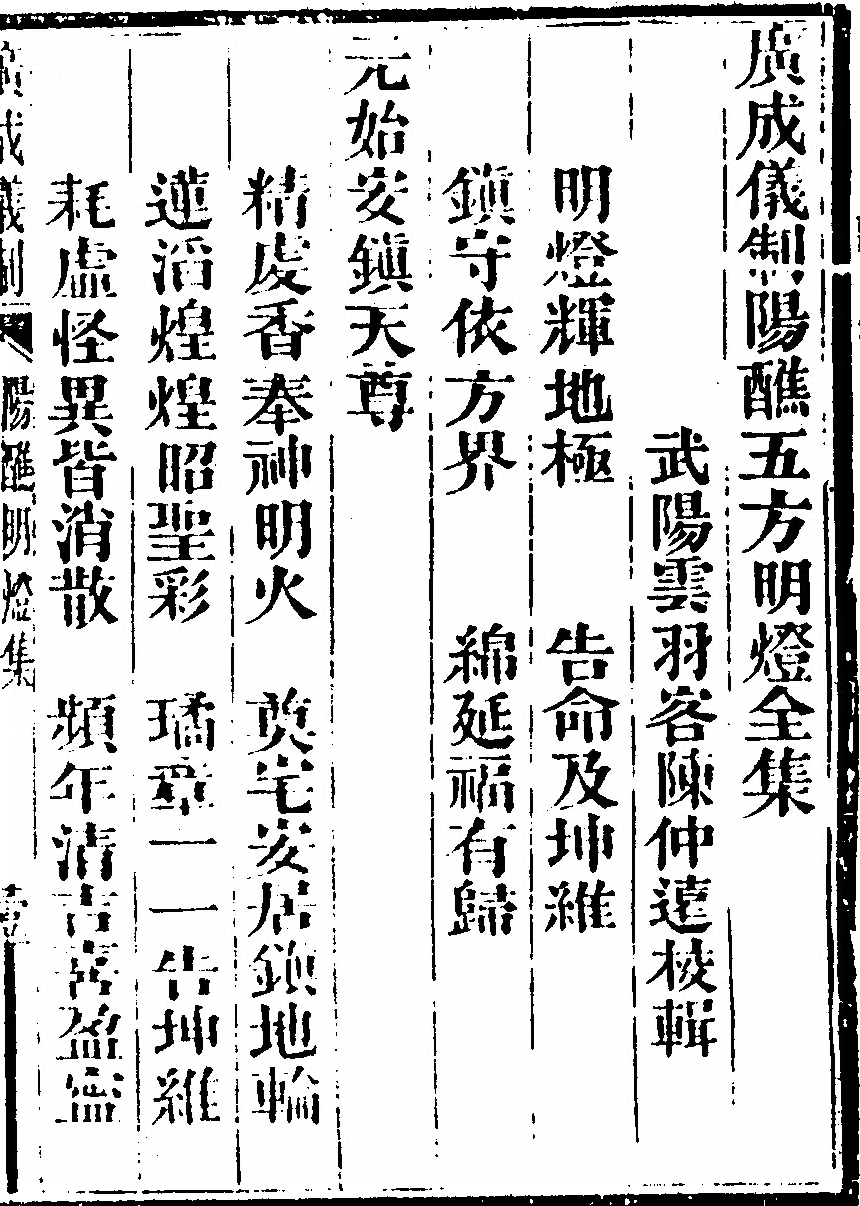 廣成儀制陽醮五方明燈全集
武陽雲羽客陳仲遠校輯
明燈輝地極　告命及坤維
鎮守依方界　綿延福有歸
元始安鎮天尊
精虔香奉神明火　奠宅安居鎮地輪
蓮滔煌煌昭聖彩　璚章一一告坤維
耗虛怪異皆消散　頻年清吉喜盈寧
廣成儀制　陽醮明燈集　壹